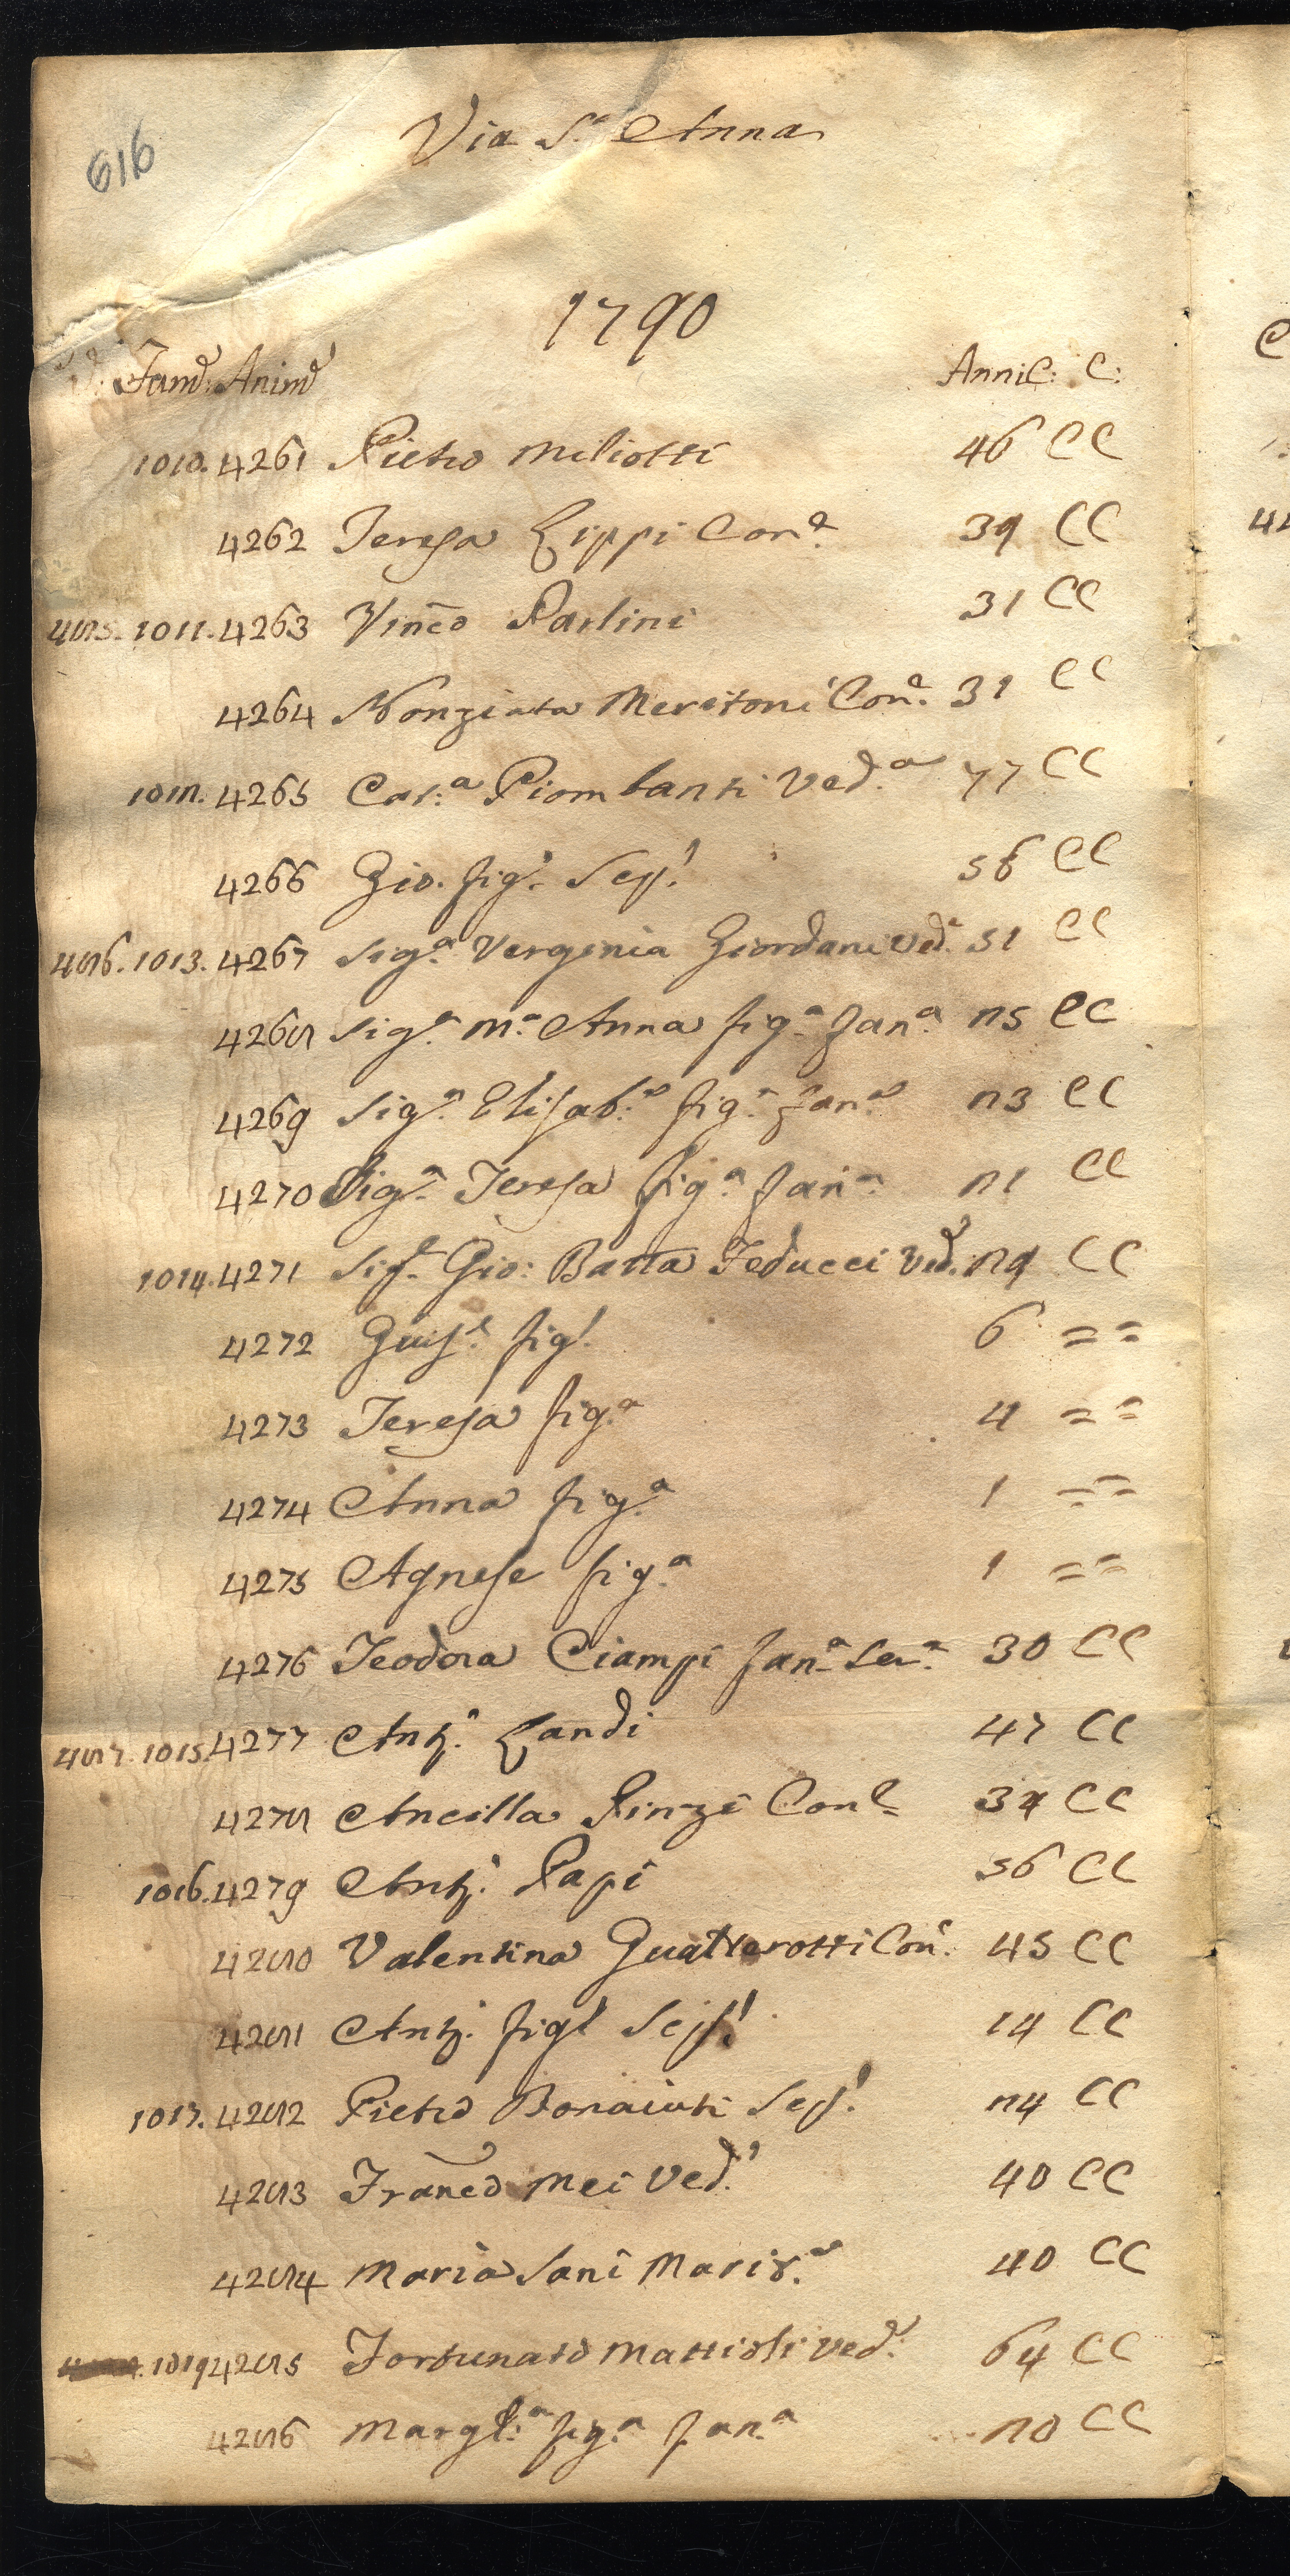 616
Via S.a Anna
1790
Fam.e Anime Anni C: C:
1010. 4261 Pietro Miliotti 46 CC
4262 Teresa Lippi Con.e 39 CC
485. 1011. 4263 Vinc̃o Parlini 31 CC
4264 Nonziata Meritoni Con.e 31 CC
1012. 4265 Cat.a Piombanti Ved.a 77 CC
4266 Gio. fig.o Sep.o 56 CC
486. 1013. 4267 Sig.a Verginia Giordani Ved.a 51 CC
4268 Sig.a M.a Anna fig.a fan.a 25 CC
4269 Sig.a Elisab.a fig.a fan.a 23 CC
4270 Sig.a Teresa fig.a fan.a 21 CC
1014. 4271 Sig.e Gio: Batta Teducci Ved. 29 CC
4272 Giuse.e fig.o 6 = =
4273 Teresa fig.a 4 = =
4274 Anna fig.a 1 = =
4275 Agnese fig.a 1 = =
4276 Teodora Ciampi fan.a Ser.a 30 CC
487. 1015. 4277 Ant.o Landi 47 CC
4278 Ancilla Pinzi Con.e 34 CC
1016. 4279 Ant.o Papi 56 CC
4280 Valentina Guatterotti Con.e 45 CC
4281 Ant.o fig.o Sep.o 14 CC
1017. 4282 Pietro Bonaiuti Sep.o 24 CC
4283 Franc̃o Mei Ved.o 40 CC
4284 Maria Sani Marit.a 40 CC
1019 4285 Fortunato Mattioli Ved.o 64 CC
4286 Margh.a fig.a fan.a 20 CC